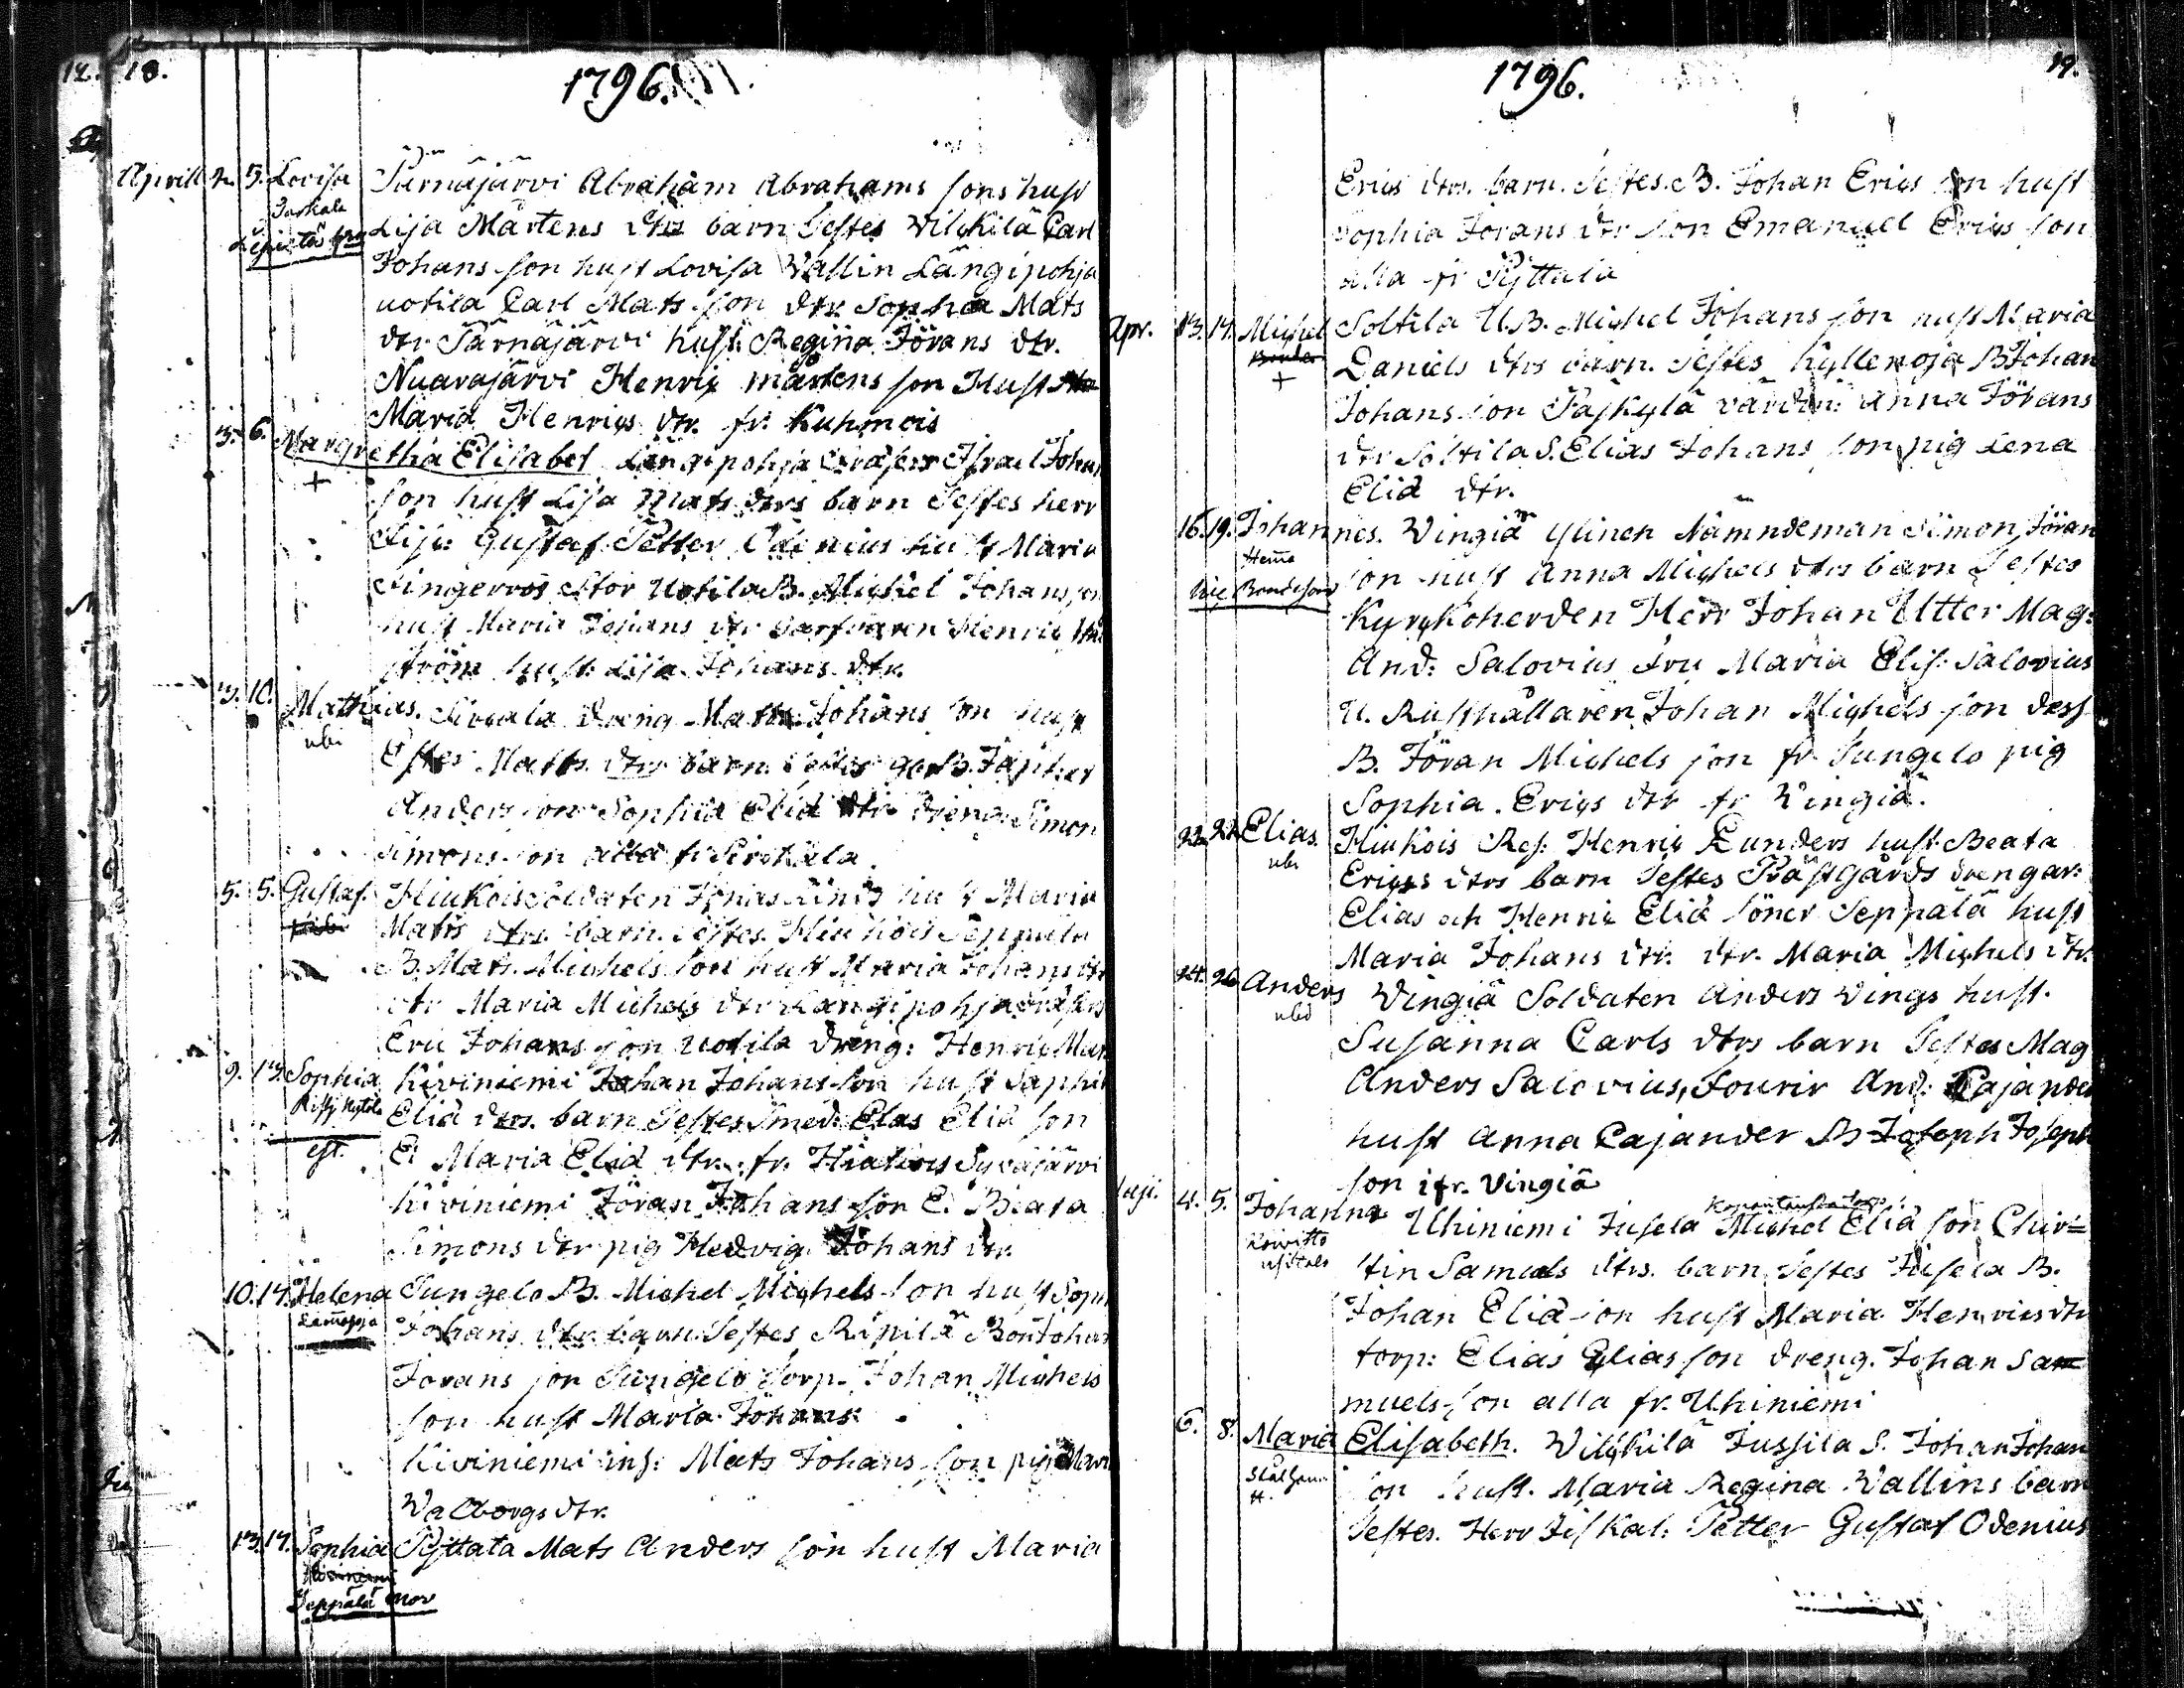 12. 18.
1796.
Aprill 2. 5. Lovisa Särnäjärvi Abraham Abrahams sons hust
Lisa Mårtens dtrs barn Testes Wilkkilä Carl
Johans son hust Lovisa Wallin Längipohja
uotila Carl Mats son dtr Sophia Mats
dtr Särnäjärvi hust: Regina Jörans dtr.
Nuarajärvi Henric mårtens son Hust
Maria Henrics dtr. fr. Kuhmois
3. 6. Margretha Elisabet Längipohja Israel Johans
+
son hust Lisa Mats dtrs barn Testes herr
Gustaf Petter Odenius hust Maria
Uotila B. Michel Johans son
hust Maria Johans dtr Henric
ström hust: Lisa Johans dtr.
3. 10. Mathias. Sirkala dreng Matts Johans son hust
ubi
Matts dtrs barn. Testes B.
Anders son Sophia Eliä dtr dreng Simon
Simons son alla fr Sirkala.
5. 5. Gustaf. Hiukois Soldaten Jonas hust Maria
Matts dtrs barn. Testes. Hiukois Seppälä
B. Mats. Michels son hust Maria Johans dtr
dtr Maria Michels dtr Längipohja
Eric Johans son Uotila dreng: Henric
9. 13. Sophia Kiviniemi Johan Johans son hust Sophia
Eliä dtrs. barn Testes Smed: Elias Eliä son
E. Maria Eliä dtr. fr. Hiukois Syväjärvi
Kiviniemi Jöran Johans son E. Beata
Simons dtr pig Hedvig Johans dtr.
10. 14. Helena Sungelo B. Michel Michels son hust Soph
Johans dtrs barn. Testes Ripilä Johan
Jorans son Sungelo Torp. Johan Michels
son hust Maria Johans
Kiviniemi inh: Mats Johans son pig Mari
Walborgs dtr.
13. 17. Sophia Pyttala Mats Anders son hust Maria
Seppälä mor
1796.
19.
Erics dtrs. barn. Testes. B. Johan Erics son hust
Sophia Jorans dtr son Emanuel Erics son
alla fr Pyttala
Apr. 13. 17. Michel Soltila U.B. Michel Johans son hust Maria
+
Daniels dtrs barn. Testes Kyllenoja B Johan
Johans son Päskylä värdin: Anna Jörans
dtr Soltila S. Elias Johans son pig Lena
Eliä dtr.
16. 19. Johannes. Wingiä Ylinen Nämndeman Simon Jöran
son hust Anna Michels dtrs barn Testes
Kyrkoherden Herr Johan Utter Mag:
And: Salovius fru Maria Elis: Salovius
U. Rusthållaren Johan Michels son dess
B. Jöran Michels son fr. Sungelo pig
Sophia. Erics dtr fr Wingiä.
22. Elias. Hiukois Res: Henric Lunders hust Beata
ubi
Erics dtrs barn Testes Prästgårds drengar:
Elias och Henric Eliä söner Seppälä hust
Maria Johans dtr. dtr. Maria Michels dtr.
24. 26 Anders Wingiä Soldaten Anders Wings hust.
Susanna Carls dtrs barn Testes Mag
Anders Salovius, Fourir And: Cajander
hust Anna Cajander B Joseph Joseph
son ifr. Vingiä
4. 5. Johanna Uhiniemi Jusela Michel Eliä son Chri=
stin Samuels dtrs. barn Testes Jusela B.
Johan Eliä son hust Maria Henrics dtr
torp: Elias Elias son dreng. Johan Sa
muels son alla fr. Uhiniemi
6. 8. Maria Elisabeth. Wilkkilä Jussila S. Johan Johan
son hust. Maria Regina Wallins barn
Testes. Herr Fiskal: Petter Gustaf Odenius